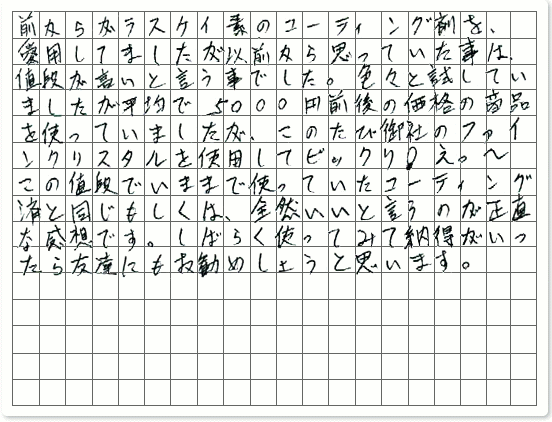 前からガラスケイ素のコーティング剤を、
愛用してましたが以前から思っていた事は、
値段が高いと言う事でした。色々と試してい
ましたが平均で5000円前後の価格の商品
を使っていましたが、このたび御社のファイ
ンクリスタルを使用してビックリ！え。〜
この値段でいままで使っていたコーティング
済と同じもしくは、全然いいと言うのが正直
な感想です。しばらく使ってみて納得がいっ
たら友達にもお勧めしようと思います。